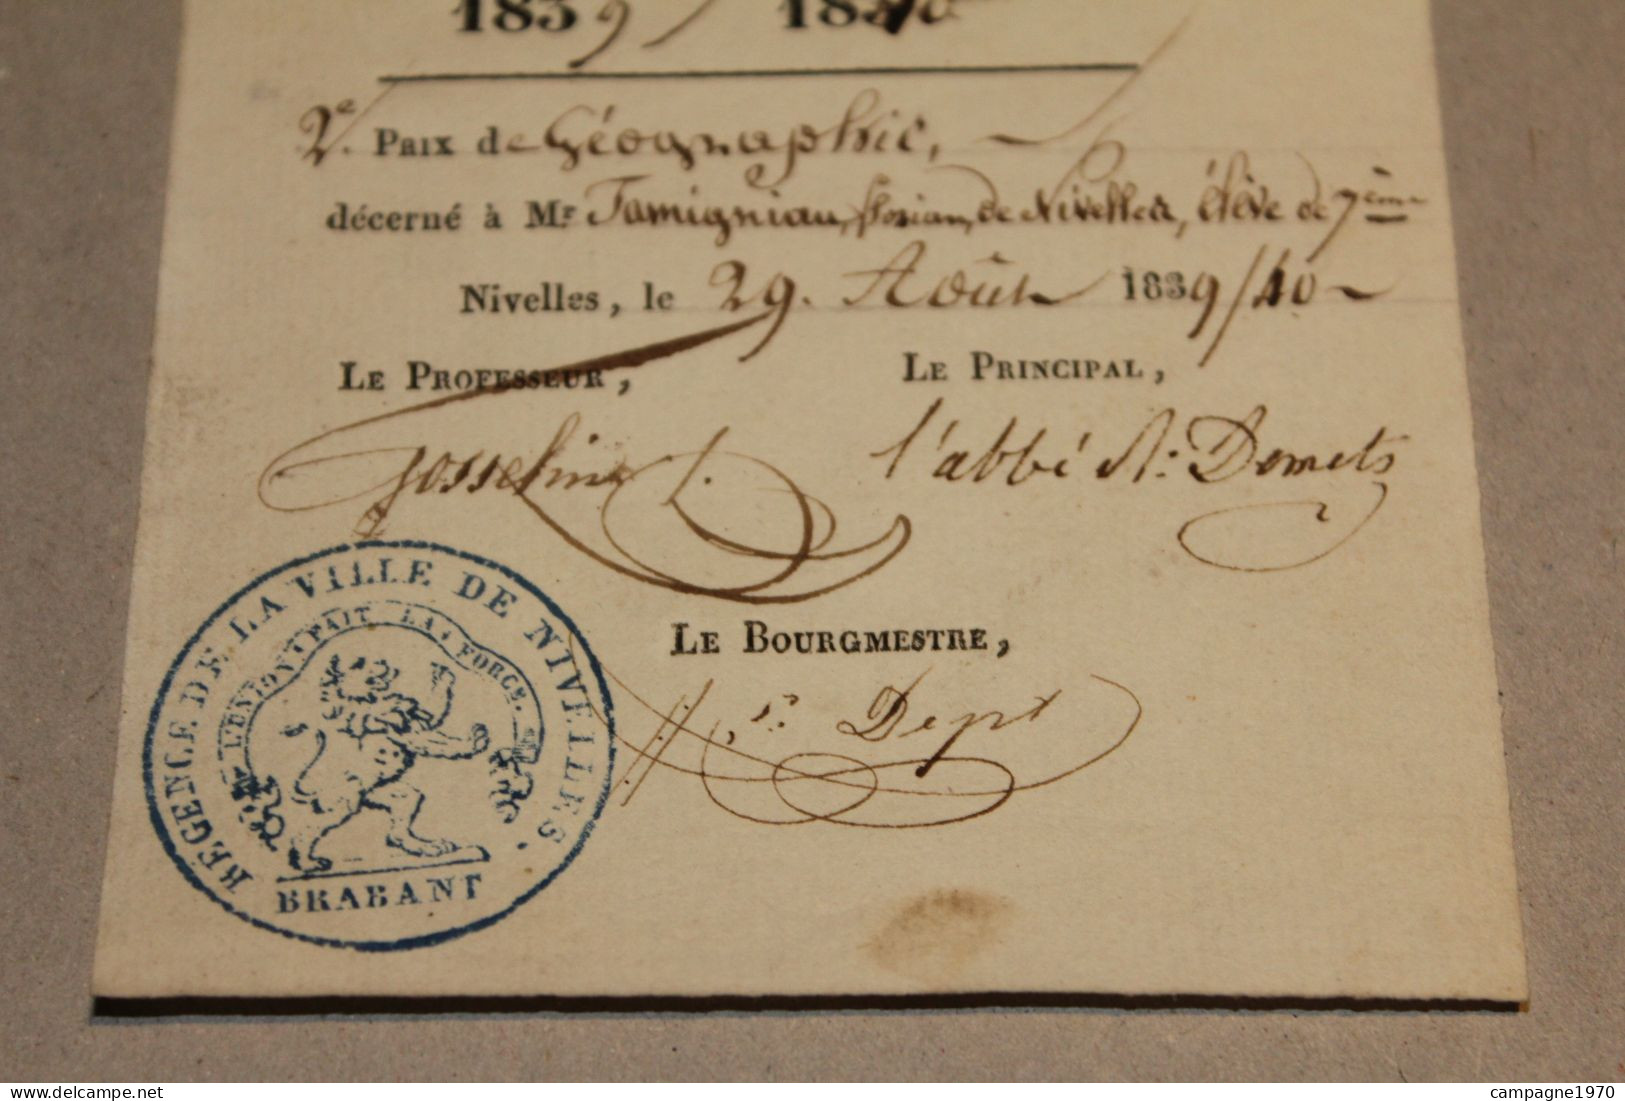 1839 1840
2e. Prix de Géographie,
décerné à Mr Tamigniau, florian, de Nivelles, élève de 7ème
Nivelles, le 29. Août 1839/40
Le Professeur, Le Principal,
Josselin l'abbé A: Demets
Le Bourgmestre,
Dept
REGENCE DE LA VILLE DE NIVELLES.
L'UNION FAIT LA FORCE.
BRABANT
delcampe.net
campagne1970